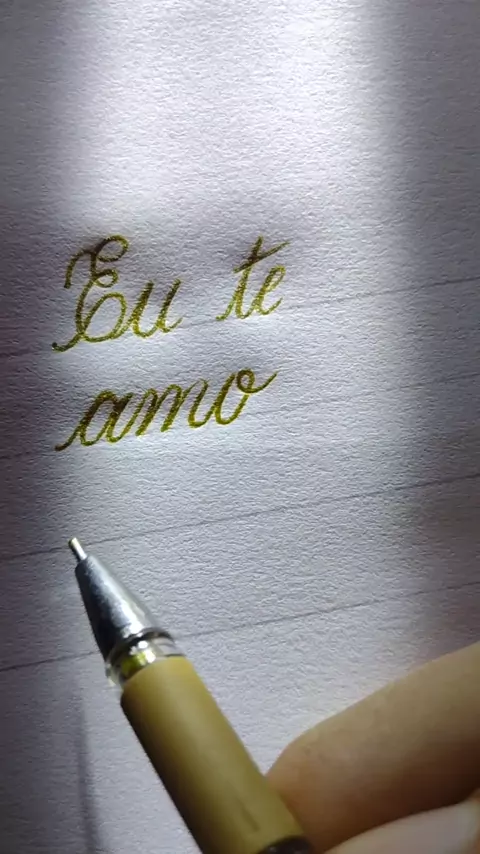 Eu te
amo